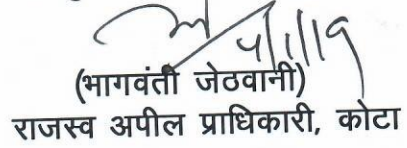 4/1/19
(भागवंती जेठवानी)
राजस्व अपील प्राधिकारी, कोटा